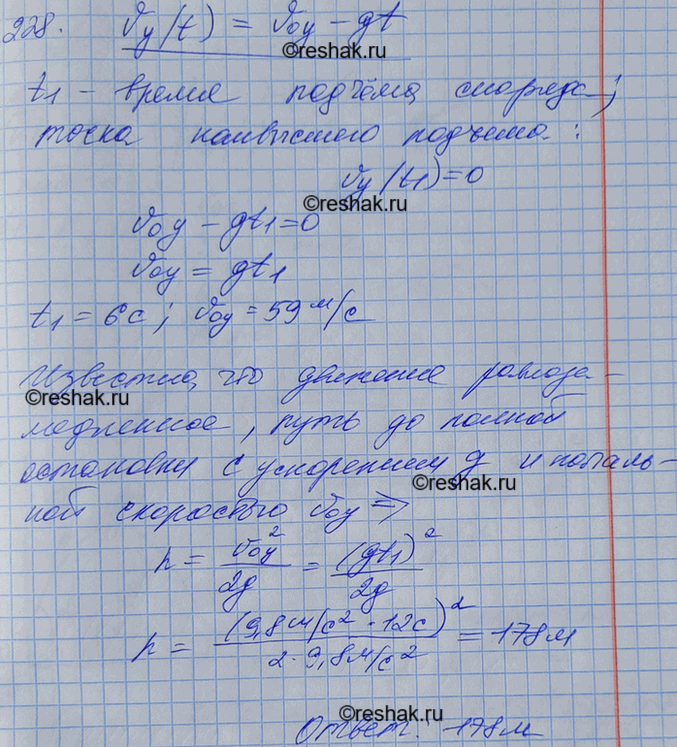 228. v₀y(t) = v₀y - gt
©reshak.ru
t₁ - время подъёма снаряда;
точка наивысшего подъема:
vy(t₁) = 0
©reshak.ru
v₀y - gt₁ = 0
v₀y = gt₁
t₁ = 6с; v₀y = 59 м/с
Известно, что движение равноза-
©reshak.ru
медленное, путь до полной
остановки с ускорением g и началь-
©reshak.ru
ной скоростью v₀y ⇒
h = v₀y²/2g = (gt₁)²/2g
h = (9,8м/с² · 12с)²/2·9,8м/с² = 178м
©reshak.ru
Ответ: 178м